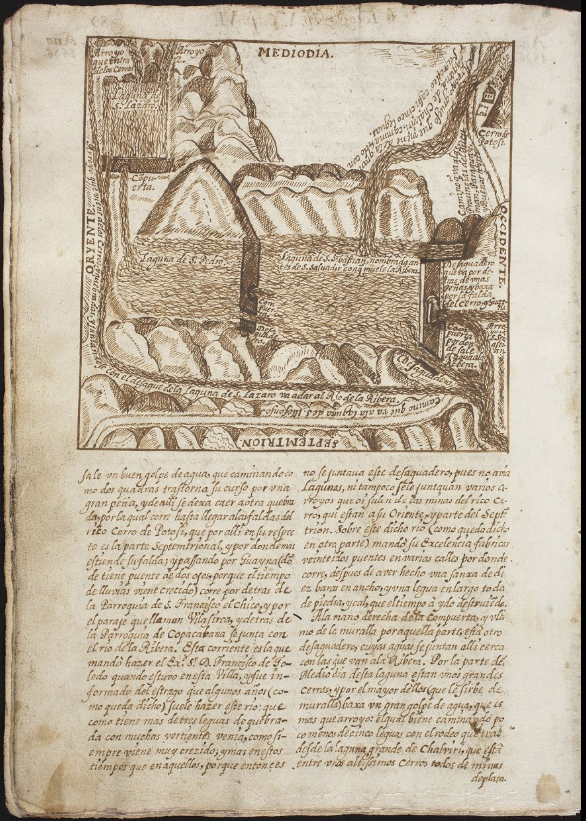 MEDIODIA.
Arroyo
que entra
de los Cerros
Arroyo
Laguna de
S. Lazaro
Compu-
erta.
Cerro de
Potosi.
ORYENTE.
OCCIDENTE.
Laguna de S. Pedro
Laguna de S. Sebastian, nombrada an
tes de S. Salvador con q̃ muele la Ribera
Desaguadero
que va por de-
tras de unas
peñas, y baxa
por la falda
del Cerro
Desaguadero
con el desague de la Laguna de S. Lazaro va a dar al Rio de la Ribera.
Camino que va a la laguna de S. Ildefonso
SEPTEMTRION
sale vn buen golpe de agua, que caminando co
mo dos quadras trastorna su curso por vna
gran peña, y de alli se dexa caer a otra quebra
da, por la qual corre hasta llegar a las faldas del
rico Cerro de Potosi, que por alli en su respec
to es la parte Septemtrional, y por donde mas
estiende su falda; y passando por Guaynaldo
de tiene puente de dos ojos, porque el tiempo
de lluvias viene crecido) corre por detras de
la Parroquia de S. Francisco el Chico, y por
el paraje que llaman Vilacirca, y detras de
la Parroquia de Copacabana se junta con
el rio de la Ribera. Esta corriente es la que
mandò hazer el Ex.º S.r D. Francisco de To-
ledo quando estuvo en esta Villa, y fue in-
formado del estrago que algunos años (co-
mo queda dicho) suele hazer este rio: que
como tiene mas de tres leguas de quebra-
da con muchas vertientes venia, como si-
empre viene muy crezido; y mas en estos
tiempos que en aquellos, porque entonces
no se juntava este desaguadero, pues no avia
Lagunas, ni tampoco se le juntavan varios a-
rroyos que oi salen de las minas del rico Ce-
rro, que estan a su Oriente, y parte del Septen
trion. Sobre este dicho rio (como queda dicho
en otra parte) mandò su Excelencia fabricar
veinte i dos puentes en varias calles por donde
corre, despues de aver hecho vna sanxa de di-
ez baras en ancho, y vna legua en largo toda
de piedra, y cal, que el tiempo a ydo destruiendo.
A la mano derecha de la Compuerta, y vlti
mo de la muralla por aquella parte, està otro
desaguadero, cuyas aguas se juntan alli cerca
con las que van a la Ribera. Por la parte del
Medio dia desta laguna estan vnos grandes
cerros, y por el mayor dellos (que le sirve de
muralla) baxa vn gran golpe de agua, que es
mas que arroyo: el qual biene caminando po
co menos de cinco leguas con el rodeo que trae
desde la laguna grande de Chalviri, que està
entre vnos altissimos Cerros todos de minas
de plata.